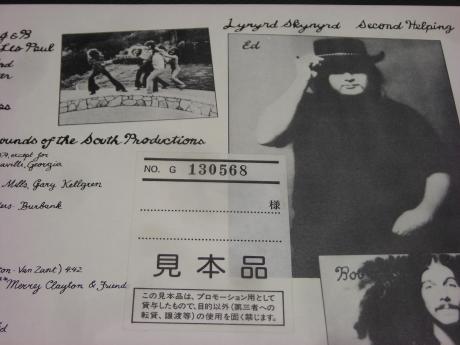 Lynyrd Skynyrd Second Helping
Ed
& B
Les Paul
Sounds of the South Productions
except for
Georgia
Mills, Gary Kellgren
Burbank
NO. G 130568
様
見本品
この見本品は、プロモーション用として
貸与したもので、目的以外(第三者への
転貸、譲渡等)の使用を固く禁じます。
ton-Van Zant) 4:42
Merry Clayton & Friend
Bob